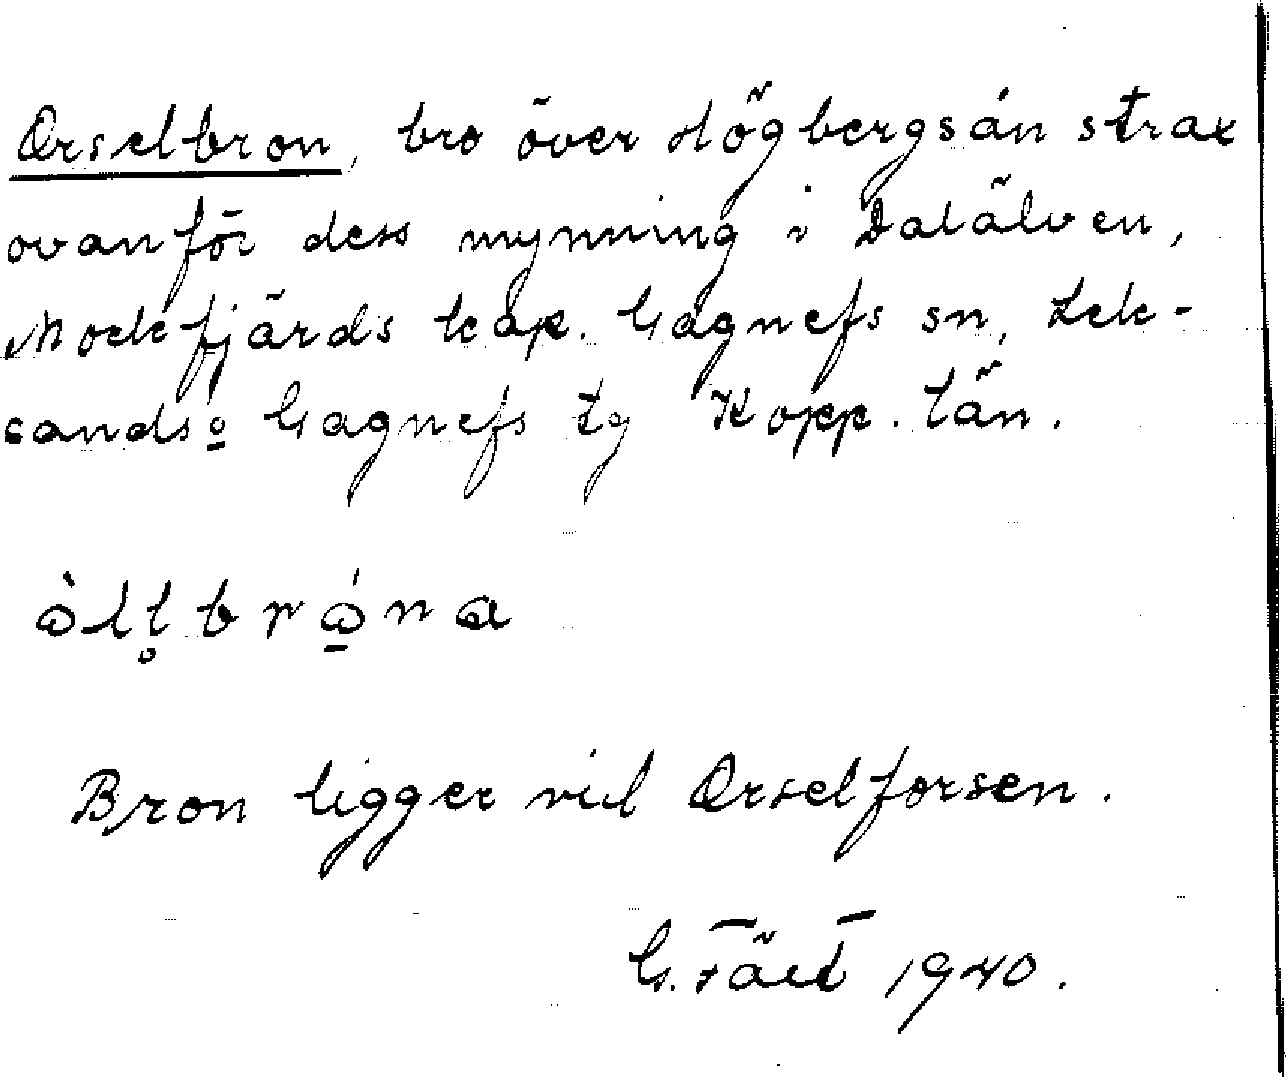 Orselbron, bro över Högbergsån strax
ovanför dess mynning i Dalälven,
Mockfjärds kap. Gagnefs sn, Lek-
sands o Gagnefs tg Kopp. län.
Bron ligger vid Orselforsen.
G. Fält 1940.